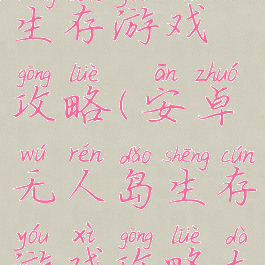 生存游戏
gōng lüè ān zhuó
攻略(安卓
wú rén dǎo shēng cún
无人岛生存
yóu xì gōng lüè dà